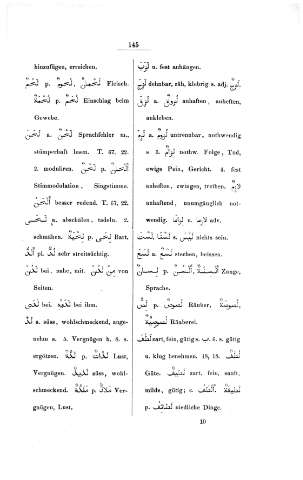 145
hinzufügen, erreichen.
لَحْمٌ p. لُحُومٌ, لُحْمَانٌ Fleisch.
لُحْمَةٌ p. لُحَمٌ Einschlag beim
Gewebe.
لَحَنَ a. لَحْنٌ Sprachfehler m.,
stümperhaft lesen. T. 67, 22.
2. moduliren. لَحْنٌ p. أَلْحَانٌ
Stimmodulation, Singstimme.
أَلْحَنُ besser redend. T. 67, 22.
a. abschälen, tadeln. 2.
schmähen. لِحْيَةٌ p. لِحًى Bart,
أَلَدُّ pl. لُدٌّ sehr streitsüchtig.
لَدُنْ bei, nahe, mit. مِنْ لَدُنْ von
Seiten.
لَدَى bei. لَدَيْهِ bei ihm.
لَذَّ a. süss, wohlschmeckend, ange-
nehm s. 5. Vergnügen h. 8. s.
ergötzen. لَذَّةٌ p. لَذَّاتٌ Lust,
Vergnügen. لَذِيذٌ süss, wohl-
schmeckend. p. Ver-
gnügen, Lust,
لَزِبَ u. fest anhängen.
dehnbar, zäh, klebrig s. adj.
لَزِقَ a. لُزُوقٌ anhaften, anheften,
ankleben.
لَزِمَ a. لُزُومٌ untrennbar, nothwendig
s 3. لِزَامٌ nothw. Folge, Tod,
ewige Pein, Gericht. 4. fest
anhaften, zwingen, treiben. لَازِمٌ
anhaftend, unumgänglich not-
wendig. c. ل adv.
لَسْتَ لَسْنَا s. لَيْسَ nichts sein.
لَسَعَ a. لَسْعٌ stechen, beissen.
لِسَانٌ p. أَلْسُنٌ, أَلْسِنَةٌ Zunge,
Sprache.
لِصٌّ p. لُصُوصٌ Räuber,
لُصُوصِيَّةٌ Räuberei.
لَطُفَ zart, fein, gütig s. ب. 5. s. gütig
u. klug benehmen. 18, 18. لُطْفٌ
Güte. لَطِيفٌ zart, fein, sanft,
milde, gütig; c. أَلْطَفُ.
p. لَطَائِفُ niedliche Dinge.
10